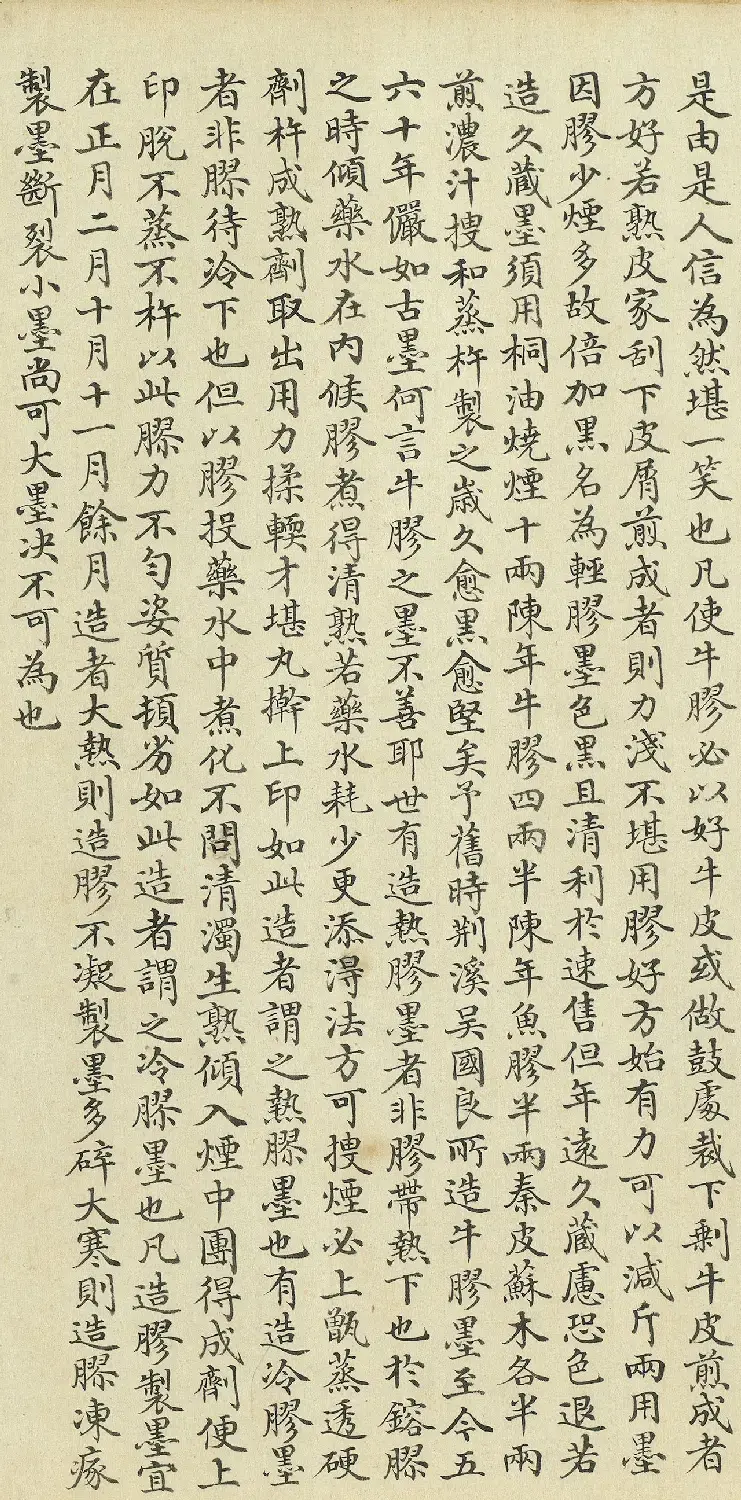 是由是人信為然堪一笑也凡使牛膠必以好牛皮或做鼓處裁下剰牛皮煎成者
方好若熟皮家刮下皮屑煎成者則力淺不堪用膠好方始有力可以減斤兩用墨
因膠少煙多故倍加黒名為輕膠墨色黒且清利於速售但年遠久蔵慮恐色退若
造久蔵墨須用桐油燒煙十兩陳年牛膠四兩半陳年魚膠半兩秦皮蘇木各半兩
煎濃汁搜和蒸杵製之歳久愈黒愈堅矣予舊時荆溪吴國良所造牛膠墨至今五
六十年儼如古墨何言牛膠之墨不善耶世有造熱膠墨者非膠帶熱下也於鎔膠
之時傾藥水在内候膠煮得清熟若藥水耗少更添得法方可搜煙必上甑蒸透硬
劑杵成熟劑取出用力揉輭才堪丸擀上印如此造者謂之熱膠墨也有造冷膠墨
者非膠待冷下也但以膠投藥水中煮化不問清濁生熟傾入煙中團得成劑便上
印脫不蒸不杵以此膠力不匀姿質頓劣如此造者謂之冷膠墨也凡造膠製墨宜
在正月二月十月十一月餘月造者大熱則造膠不凝製墨多碎大寒則造膠凍瘃
製墨斷裂小墨尚可大墨决不可為也